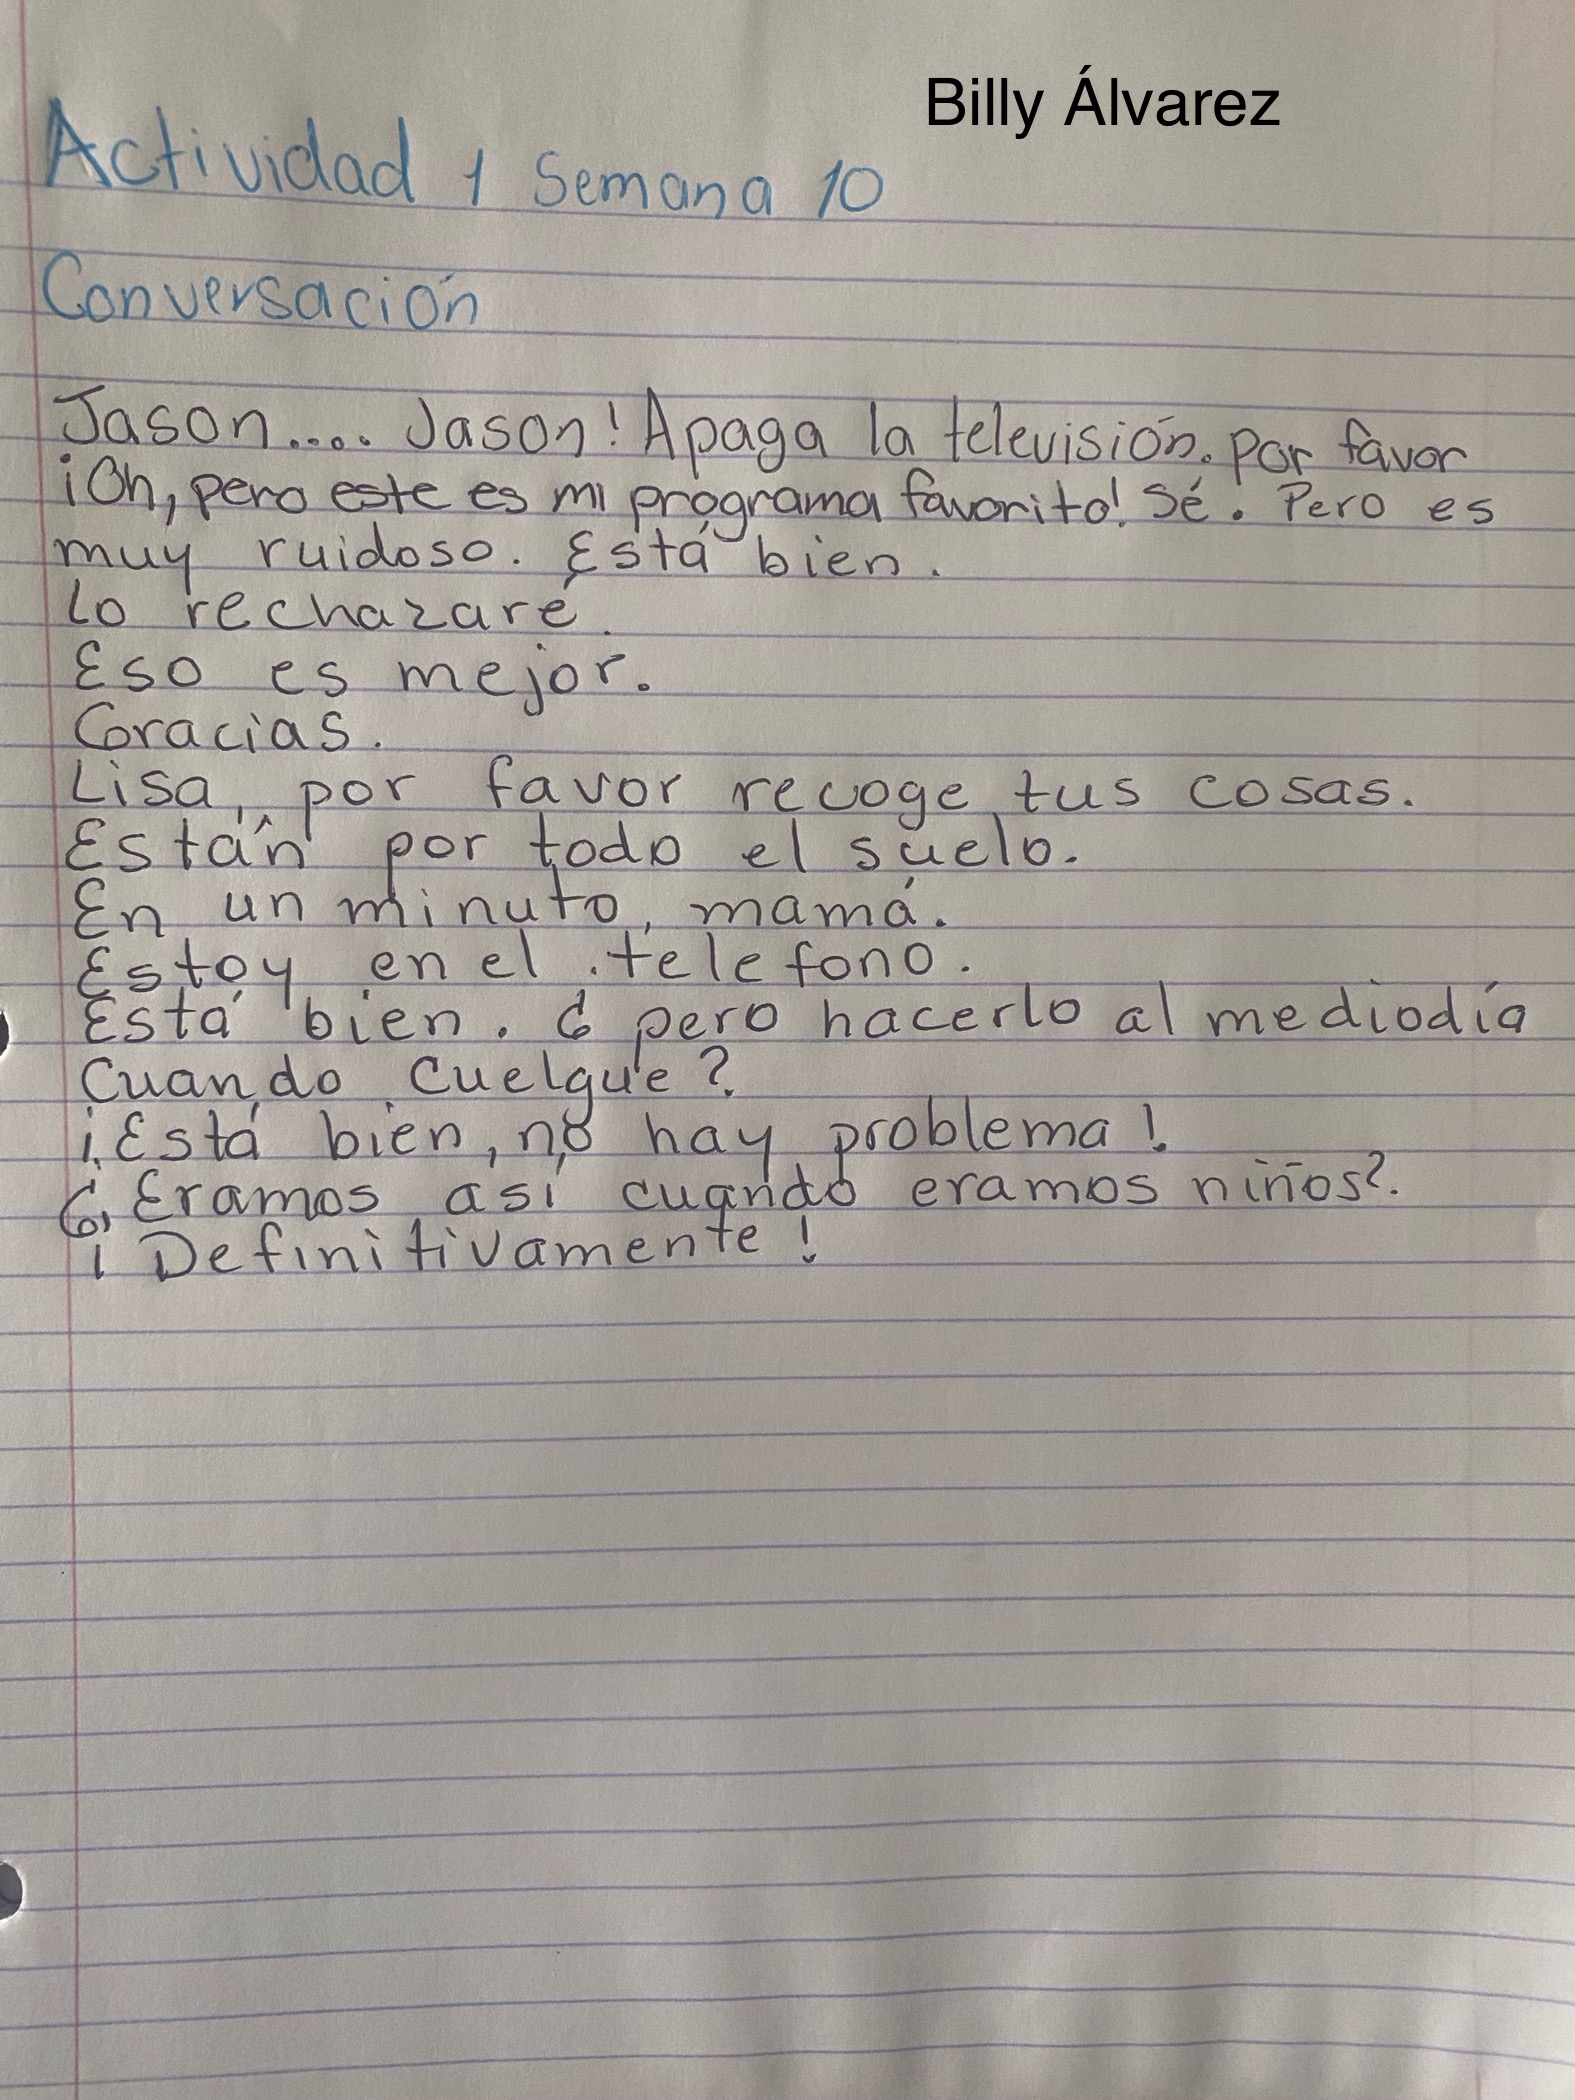 Billy Álvarez
Actividad 1 Semana 10
Conversación
Jason.... Jason! Apaga la televisión. por favor
¡Oh, pero este es mi programa favorito! Sé. Pero es
muy ruidoso. Está bien.
Lo rechazaré.
Eso es mejor.
Gracias.
Lisa, por favor recoge tus cosas.
Están por todo el suelo.
En un minuto, mamá.
Estoy en el telefono.
Está bien. ¿ pero hacerlo al mediodía
Cuando cuelgue?
¡Está bien, no hay problema!
¿Eramos así cuando eramos niños?
¡Definitivamente!